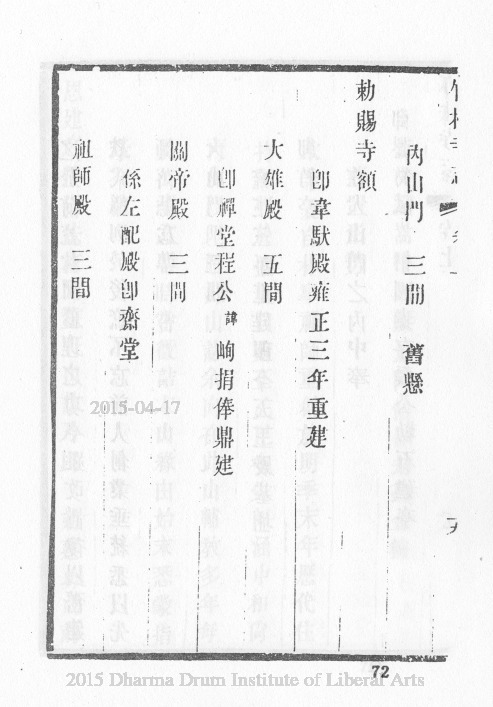 內山門 三間 舊懸
勅賜寺額
卽韋馱殿雍正三年重建
大雄殿 五間
卽禪堂程公諱峋捐俸鼎建
關帝殿 三間
係左配殿卽齋堂
祖師殿 三間
2015-04-17
72
2015 Dharma Drum Institute of Liberal Arts